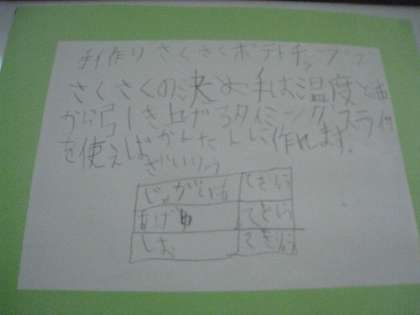 手作りさくさくポテトチップス
さくさくの決め手は温度と油
から引き上げるタイミング。スライサ
を使えばかんたんに作れます。
ざいりょう
じゃがいも てきりょう
あげ油 てきりょう
しお てきりょう